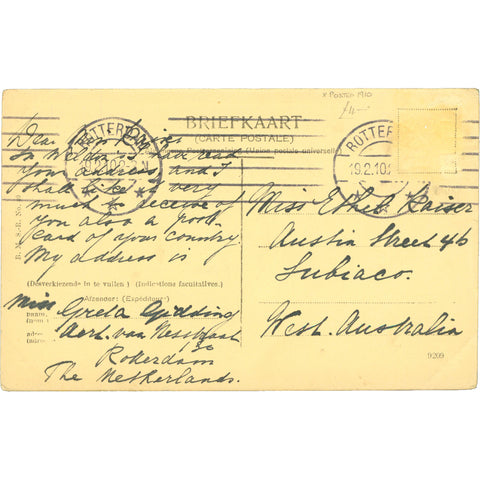 * POSTED 1910
£4-
BRIEFKAART
(CARTE POSTALE)
(Union postale universelle)
ROTTERDAM
19.2.10
ROTTE
19.2.10
Dear Miss Kaiser
In I had read
your address, and I
shall like it very
much to receive of
you also a post
card of your country.
My address is
(Desverkiezende in te vullen) (Indications facultatives.)
Afzender: (Expéditeur:)
Miss Greta Gidding
Aert. van Nesstraat
Rotterdam
The Netherlands.
Miss Ethel Kaiser
Austin Street 46
Subiaco.
West. Australia
9209